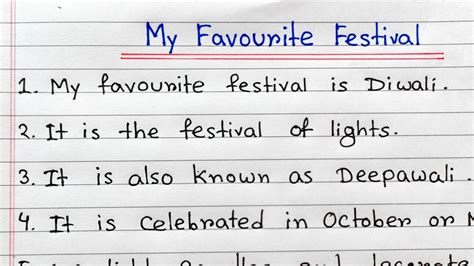 My Favourite Festival
1. My favourite festival is Diwali.
2. It is the festival of lights.
3. It is also known as Deepawali.
4. It is celebrated in October or